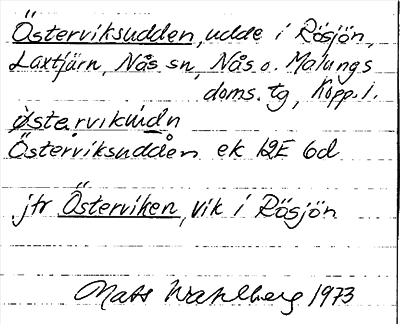 Österviksudden, udde i Rösjön,
Laxtjärn, Nås sn, Nås o. Malungs
doms. tg, Kopp. l.
østarvikudn
Österviksudden ek 12E 6d
jfr Österviken, vik i Rösjön
Mats Wahlberg 1973